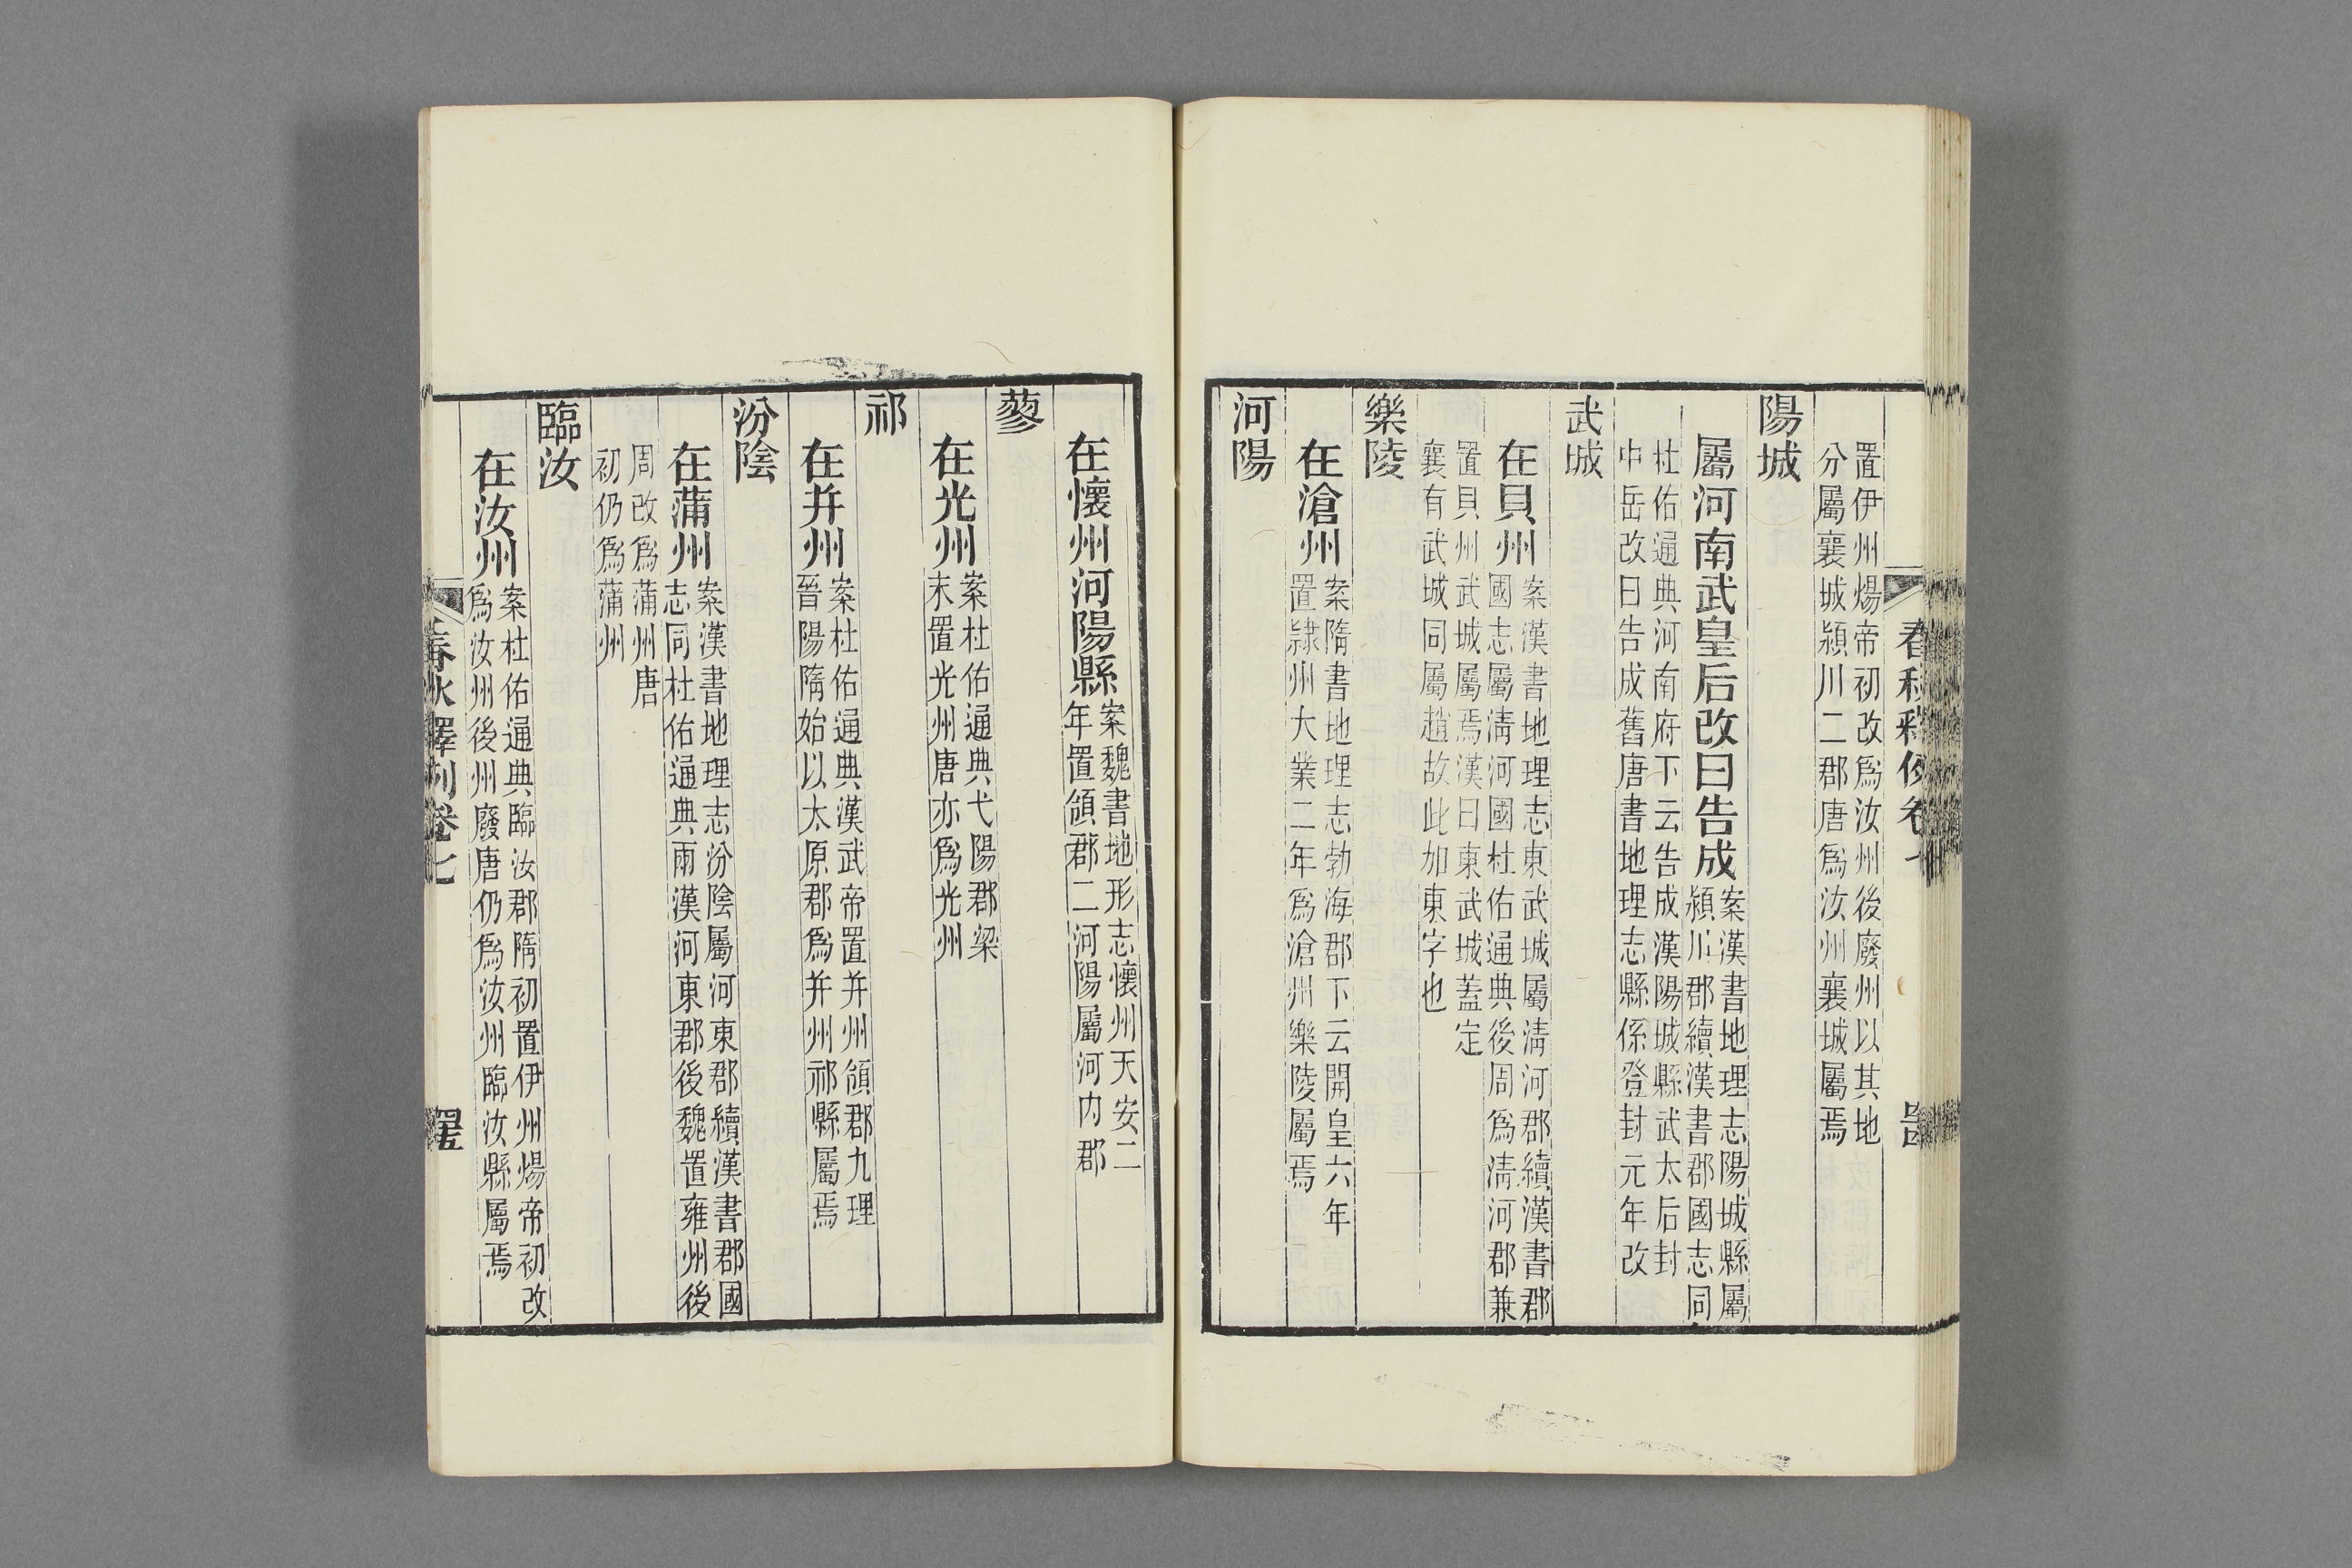 置伊州煬帝初改爲汝州後廢州以其地
分屬襄城潁川二郡唐爲汝州襄城屬焉
陽城
屬河南武皇后改曰告成
案漢書地理志陽城縣屬
潁川郡續漢書郡國志同
杜佑通典河南府下云告成漢陽城縣武太后封
中岳改曰告成舊唐書地理志縣係登封元年改
武城
在貝州
案漢書地理志東武城屬淸河郡續漢書郡
國志屬淸河國杜佑通典後周爲淸河郡兼
置貝州武城屬焉漢曰東武城蓋定
襄有武城同屬趙故此加東字也
樂陵
在滄州
案隋書地理志勃海郡下云開皇六年
置隷州大業二年爲滄州樂陵屬焉
河陽
在懷州河陽縣
案魏書地形志懷州天安二
年置領郡二河陽屬河内郡
蓼
在光州
案杜佑通典弋陽郡梁
末置光州唐亦爲光州
祁
在并州
案杜佑通典漢武帝置并州領郡九理
晉陽隋始以太原郡爲并州祁縣屬焉
汾陰
在蒲州
案漢書地理志汾陰屬河東郡續漢書郡國
志同杜佑通典兩漢河東郡後魏置雍州後
周改爲蒲州唐
初仍爲蒲州
臨汝
在汝州
案杜佑通典臨汝郡隋初置伊州煬帝初改
爲汝州後州廢唐仍爲汝州臨汝縣屬焉
春秋釋例卷七